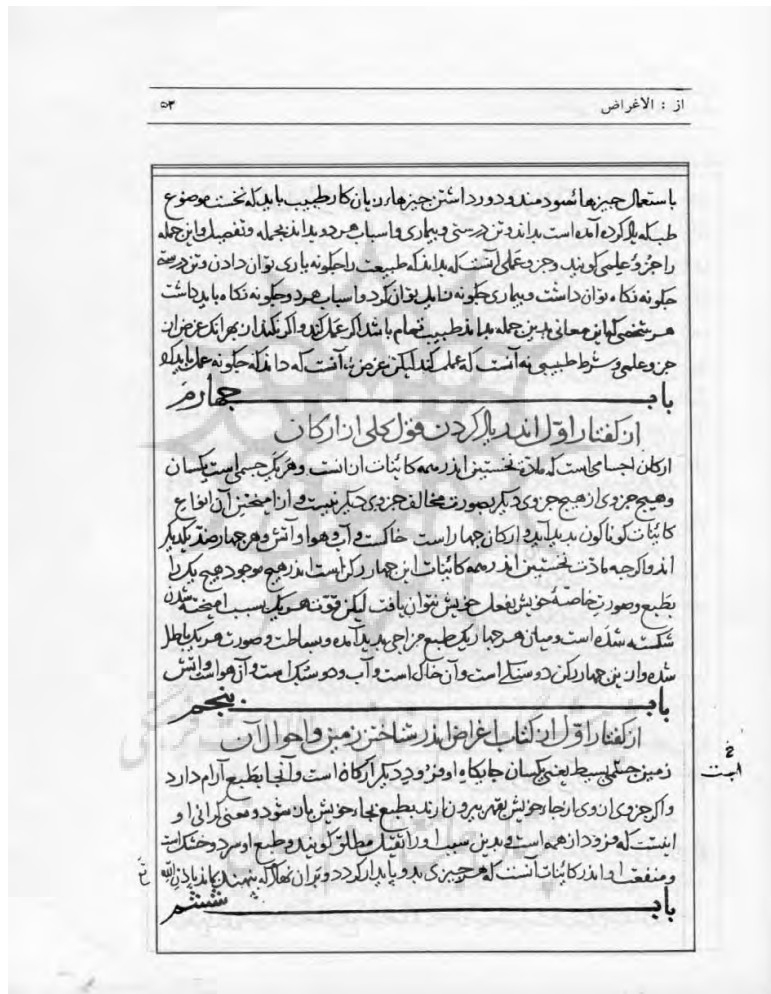 از : الاغراض
۵۳
باستعمال چیزهاء سودمند و دور داشتن چیزهاء زیان کار طبیب باید که نخست موضوع
طب که یاد کرده آمده است بداند و تن درستی و بیماری و اسباب هر دو بداند بجمله و تفصیل و این جمله
را جزو علمی گویند و جزو عملی آنست که بداند که طبیعت را چگونه یاری توان دادن و تن درستی
چگونه نگاه توان داشت و بیماری چگونه زایل توان کرد و اسباب هر دو چگونه نگاه باید داشت
هر شخصی که این معانی بدین جمله بداند طبیب تمام باشد اگر عمل کند و اگر نکند از بهر آنک غرض از
جزو علمی و شرط طبیبی نه آنست که عمل کند لیکن غرض آنست که داند که چگونه عمل باید کرد
باب چهارم
از گفتار اول اندر یاد کردن قول کلی از ارکان
ارکان اجسامی است که مادة نخستین اندر همه کائنات آن است و هر یک جسمی است یکسان
و هیچ جزوی از هیچ جزوی دیگر بصورت مخالف جزوی دیگر نیست و از آمیختن آن انواع
کائنات گوناگون پدید آید و ارکان چهار است خاکست و آب و هوا و آتش و هر چهار ضد یکدیگر
اند و اگر چه مادت نخستین اندر همه کائنات این چهار رکن است اندر هیچ موجود هیچ یک را
بطبع و صورت خاصهٔ خویش بفعل خویش نتوان یافت لیکن قوت هر یک بسبب آمیخته شدن
شکسته شده است و میان هر چهار یک طبع مزاجی پدید آمده و بساطت و صورت هر یک باطل
شده و از این چهار رکن دو سنگی است و آن خاک است و آب و دو سبک است و آن هواست و آتش
باب پنجم
از گفتار اول از کتاب اغراض اندر شناختن زمین و احوال آن
زمین جسمی بسیط یعنی یکسان جایگاه او فرود دیگر ارکان است و آنجا بطبع آرام دارد
و اگر جزوی از وی از جاء خویش بقهر بیرون آرند بطبع بجاء خویش باز شود و معنی گرانی او
اینست که فرود از همه است و بدین سبب او را ثقیل مطلق گویند و طبع او سرد و خشک است
و منفعت او اندر کائنات آنست که هر چیزی بدو پایدار گردد و بر آن نهاد که بنهند بماند باذن الله
باب ششم